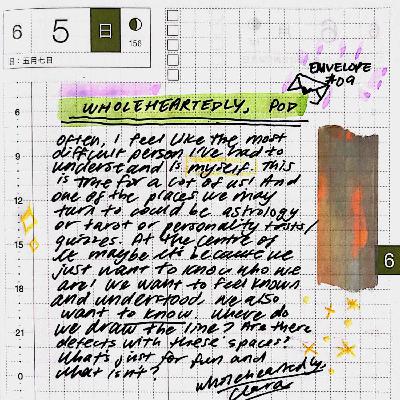 6
5
日
156
日:五月七日
ENVELOPE
#09
WHOLEHEARTEDLY, POD
Often, I feel like the most
difficult person I've had to
understand is myself. This
is true for a lot of us! And
one of the places we may
turn to could be astrology
or tarot or personality tests/
quizzes. At the centre of
it maybe it's because we
just want to know who we
are! We want to feel known
and understood, we also
want to know. Where do
we draw the line? Are there
defects with these 'spaces'?
What's just for fun and
what isn't?
wholeheartedly,
Clara
6
9
12
15
18
21
0
6